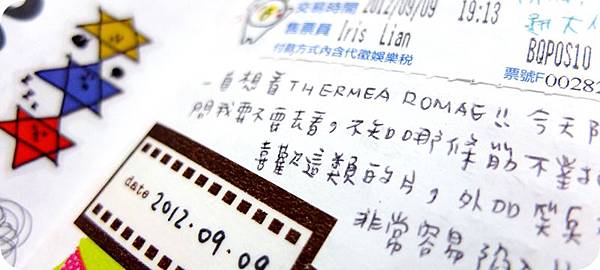 交易時間 2012/09/09 19:13
售票員 Iris Lian
付款方式內含代徵娛樂稅
BQPOS10
票號F00281
一直想看THERMEA ROMAE!! 今天
問我要不要去看,不知如哪條筋不對
喜歡這類的片,外加笑點
非常容易
date 2012.09.09